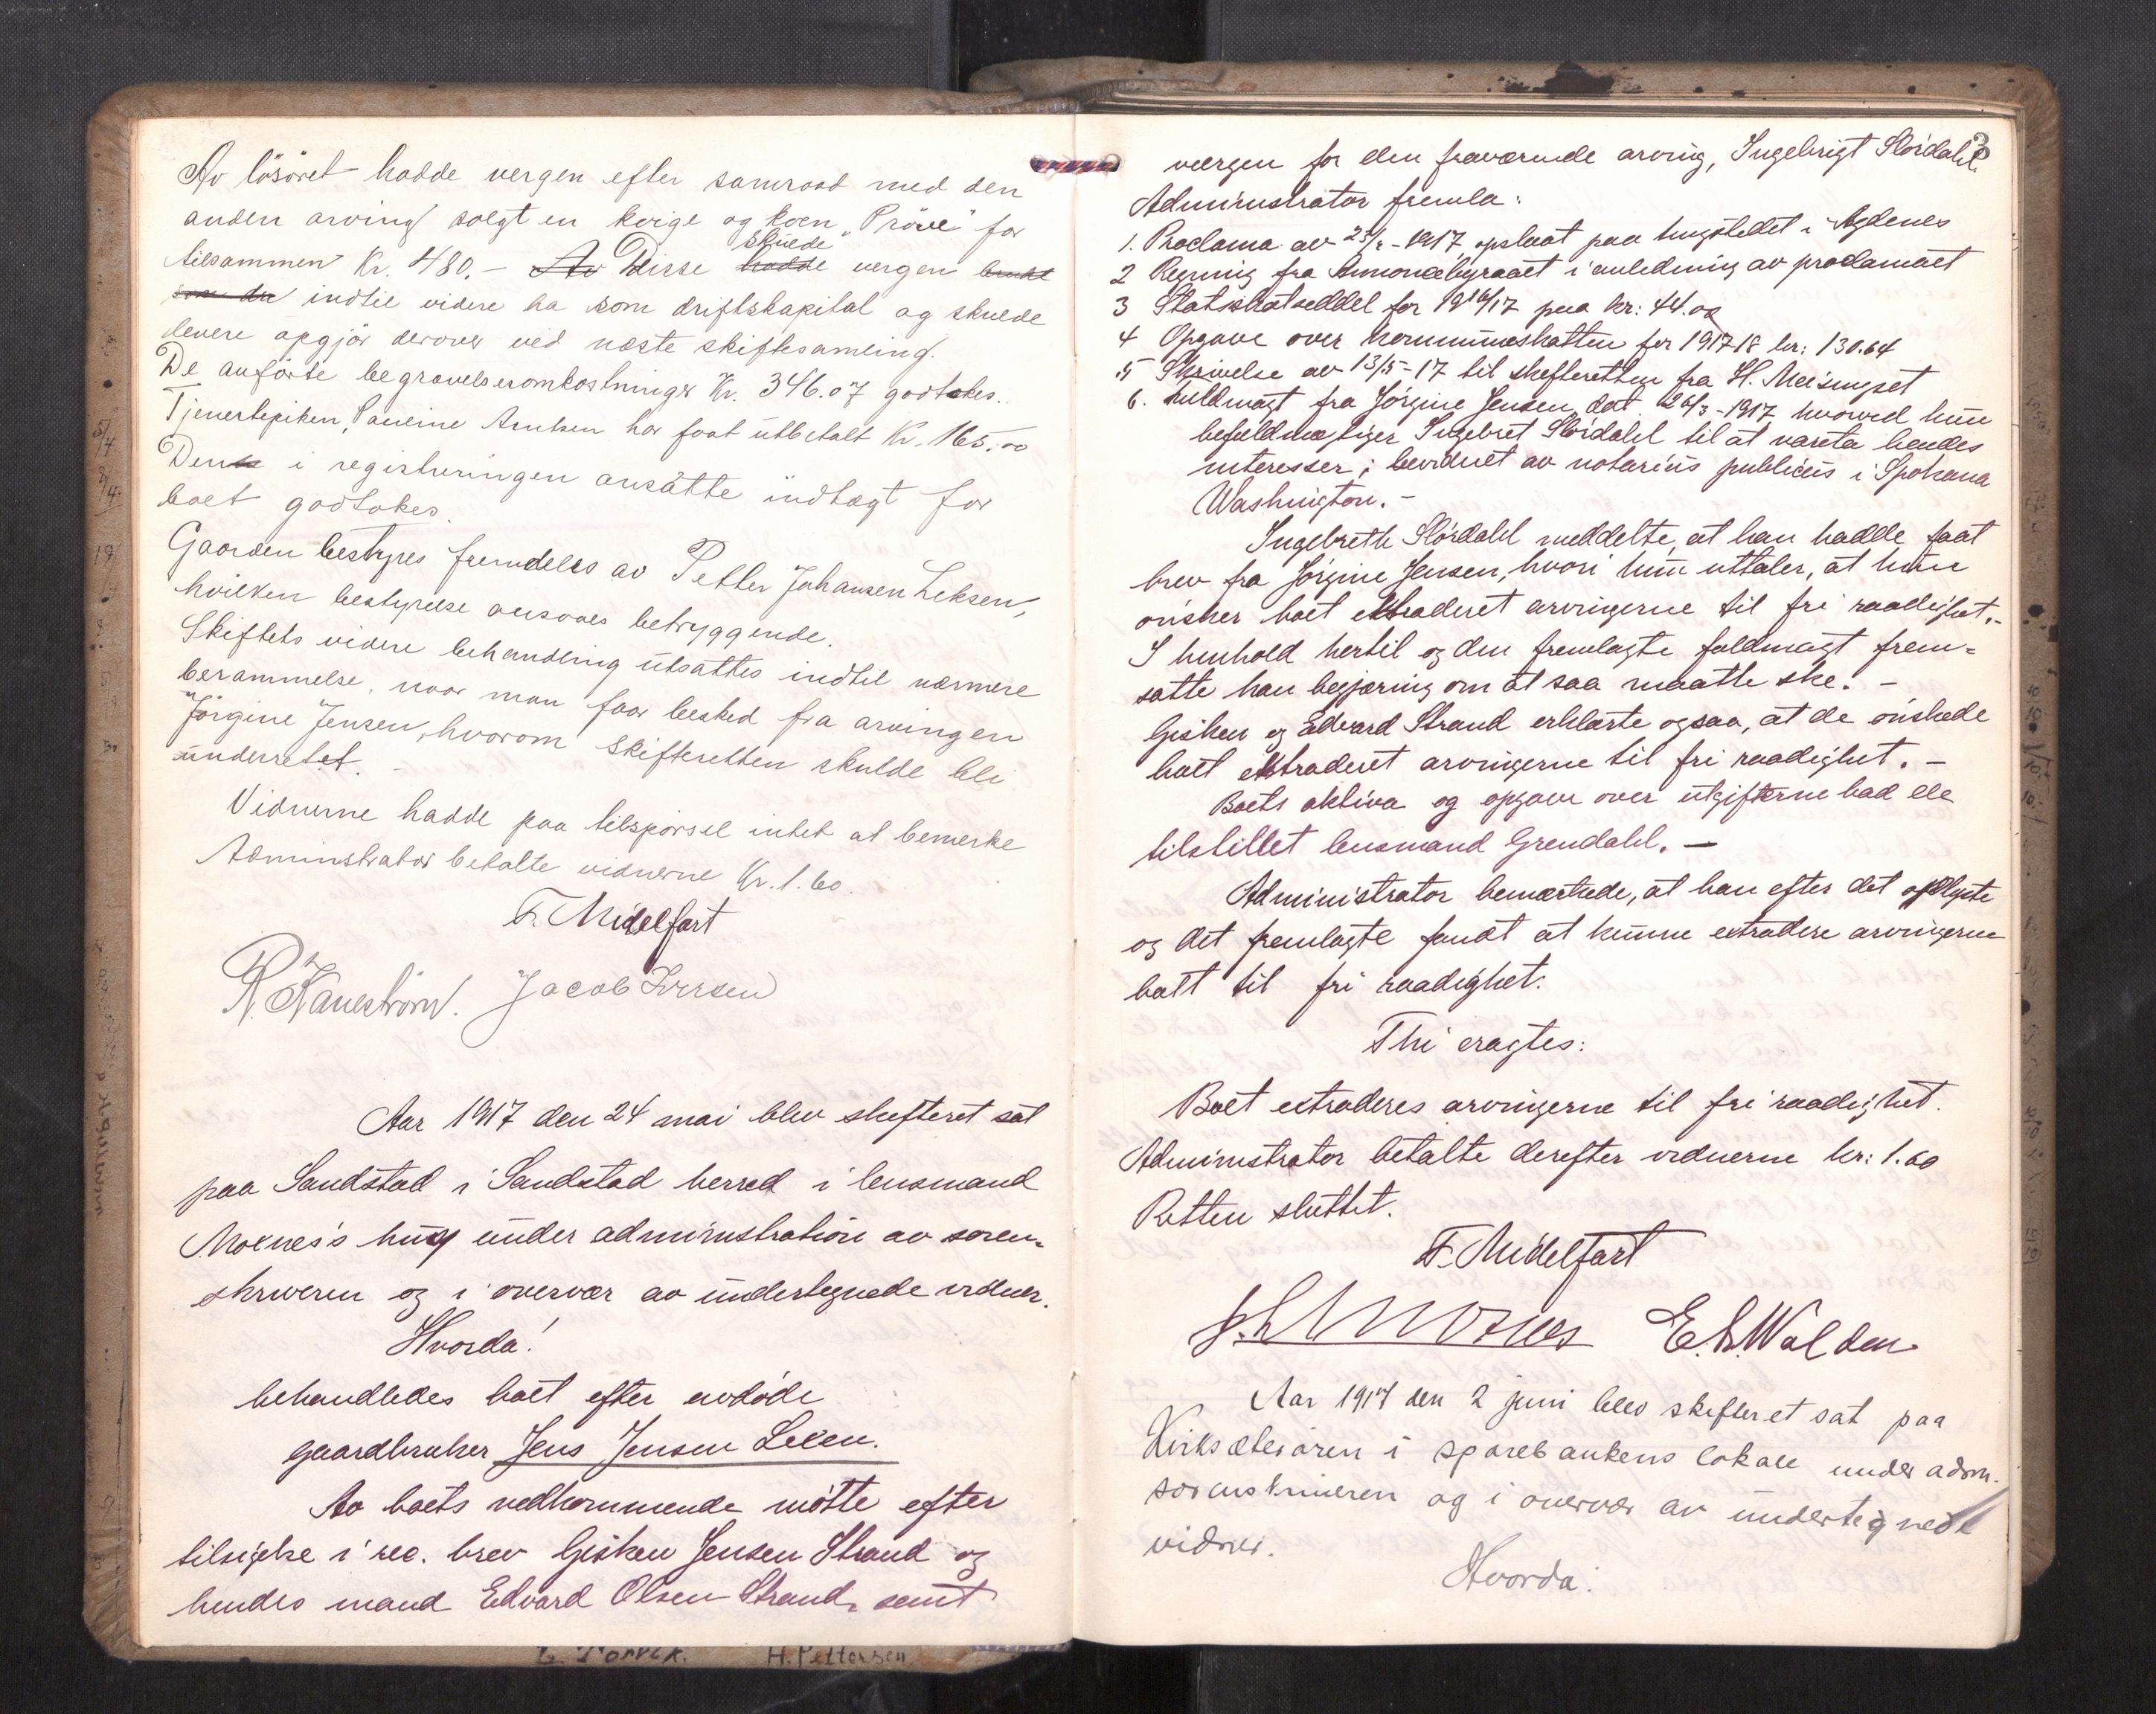 Av lösöret hadde vergen efter samraad med den
anden arving solgt en kvige og koen "Pröve" for
tilsammen Kr. 480.- Av Disse hadde skulde vergen brukt
som dri indtil videre ha som driftskapital og skulde
levere opgjör derover ved næste skiftesamling.
De anförte begravelsesomkostninger Kr. 346.07 godtokes.
Tjenestepiken, Pauline Arntsen har faat utbetalt Kr. 165.00
Den i registreringen ansatte indtægt for
boet godtokes.
Gaarden bestyres fremdeles av Petter Johansen Leksen,
hvilken bestyrelse ansaaes betryggende.
Skiftets videre behandling utsattes indtil nærmere
berammelse, naar man faar besked fra arvingen
Jörgine Jensen, hvorom skifteretten skulde bli
underretet. -
Vidnerne hadde paa tilspörsel intet at bemerke
Administrator betalte vidnerne Kr. 1.60.
F. Midelfart
R. Haneström. Jacob Iversen
Aar 1917 den 24 mai blev skifteret sat
paa Sandstad i Sandstad herred i lensmand
Moenes's hus under administration av soren-
skriveren og i overvær av undertegnede vidner.
Hvorda!
behandledes boet efter avdöde
gaardbruker Jens Jensen Lexen.
Av boets vedkommende mötte efter
tilsigelse i rec. brev Gisken Jensen Strand og
hendes mand Edvard Olsen Strand, samt
3
værgen for den fraværende arving, Ingebrigt Slördahl.
Administrator fremla:
1. Proclama av 23/2-1917 opslaat paa tingstedet i Agdenes
2 Regning fra Annoncebyraaet i anledning av proclamaet
3 Statsskatseddel for 1916/17 paa kr: 44.00
4 Opgave over kommuneskatten for 1917-18 kr: 130.64
5 Skrivelse av 13/5-17 til skifteretten fra H. Meisingset
6. Fuldmagt fra Jörgine Jensen, dat. 26/3-1917 hvorved hun
befuldmægtiger Ingebret Slördahl til at vareta hendes
interesser; bevidnet av notarius publicus i Spokana
Washington. -
Ingebreth Slördahl meddelte, at han hadde faat
brev fra Jörgine Jensen, hvori hun uttaler, at hun
önsker boet extraderet arvingerne til fri raadighet. -
I henhold hertil og den fremlagte fuldmagt frem-
satte han begjæring om at saa maatte ske. -
Gisken og Edvard Strand erklærte ogsaa, at de önskede
boet extraderet arvingerne til fri raadighet. -
Boets aktiva og opgave over utgifterne bad de
tilstillet lensmand Grendahl. -
Administrator bemærkede, at han efter det oplyste
og det fremlagte fandt at kunne extradere arvingerne
boet til fri raadighet.
Thi eragtes:
Boet extraderes arvingerne til fri raadighet.
Administrator betalte derefter vidnerne kr: 1.60
Retten sluttet.
F. Midelfart
Moenes E. A. Walden
Aar 1917 den 2 juni blev skifteret sat paa
Kirksæterören i sparebankens lokale under adm.
sorenskriveren og i overvær av undertegnede
vidner.
Hvorda:
H. Pettersen.